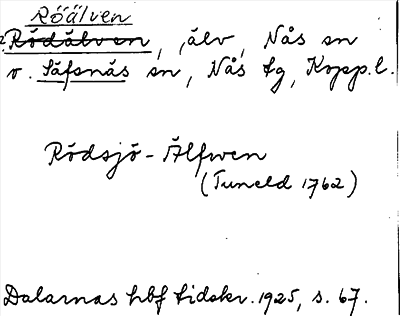 Röälven
Rödälven, älv, Nås sn
o. Säfsnäs sn, Nås tg, Kopp.l.
Rödsjö-Älfwen
(Tuneld 1762)
Dalarnas hbf tidskr. 1925, s. 67.